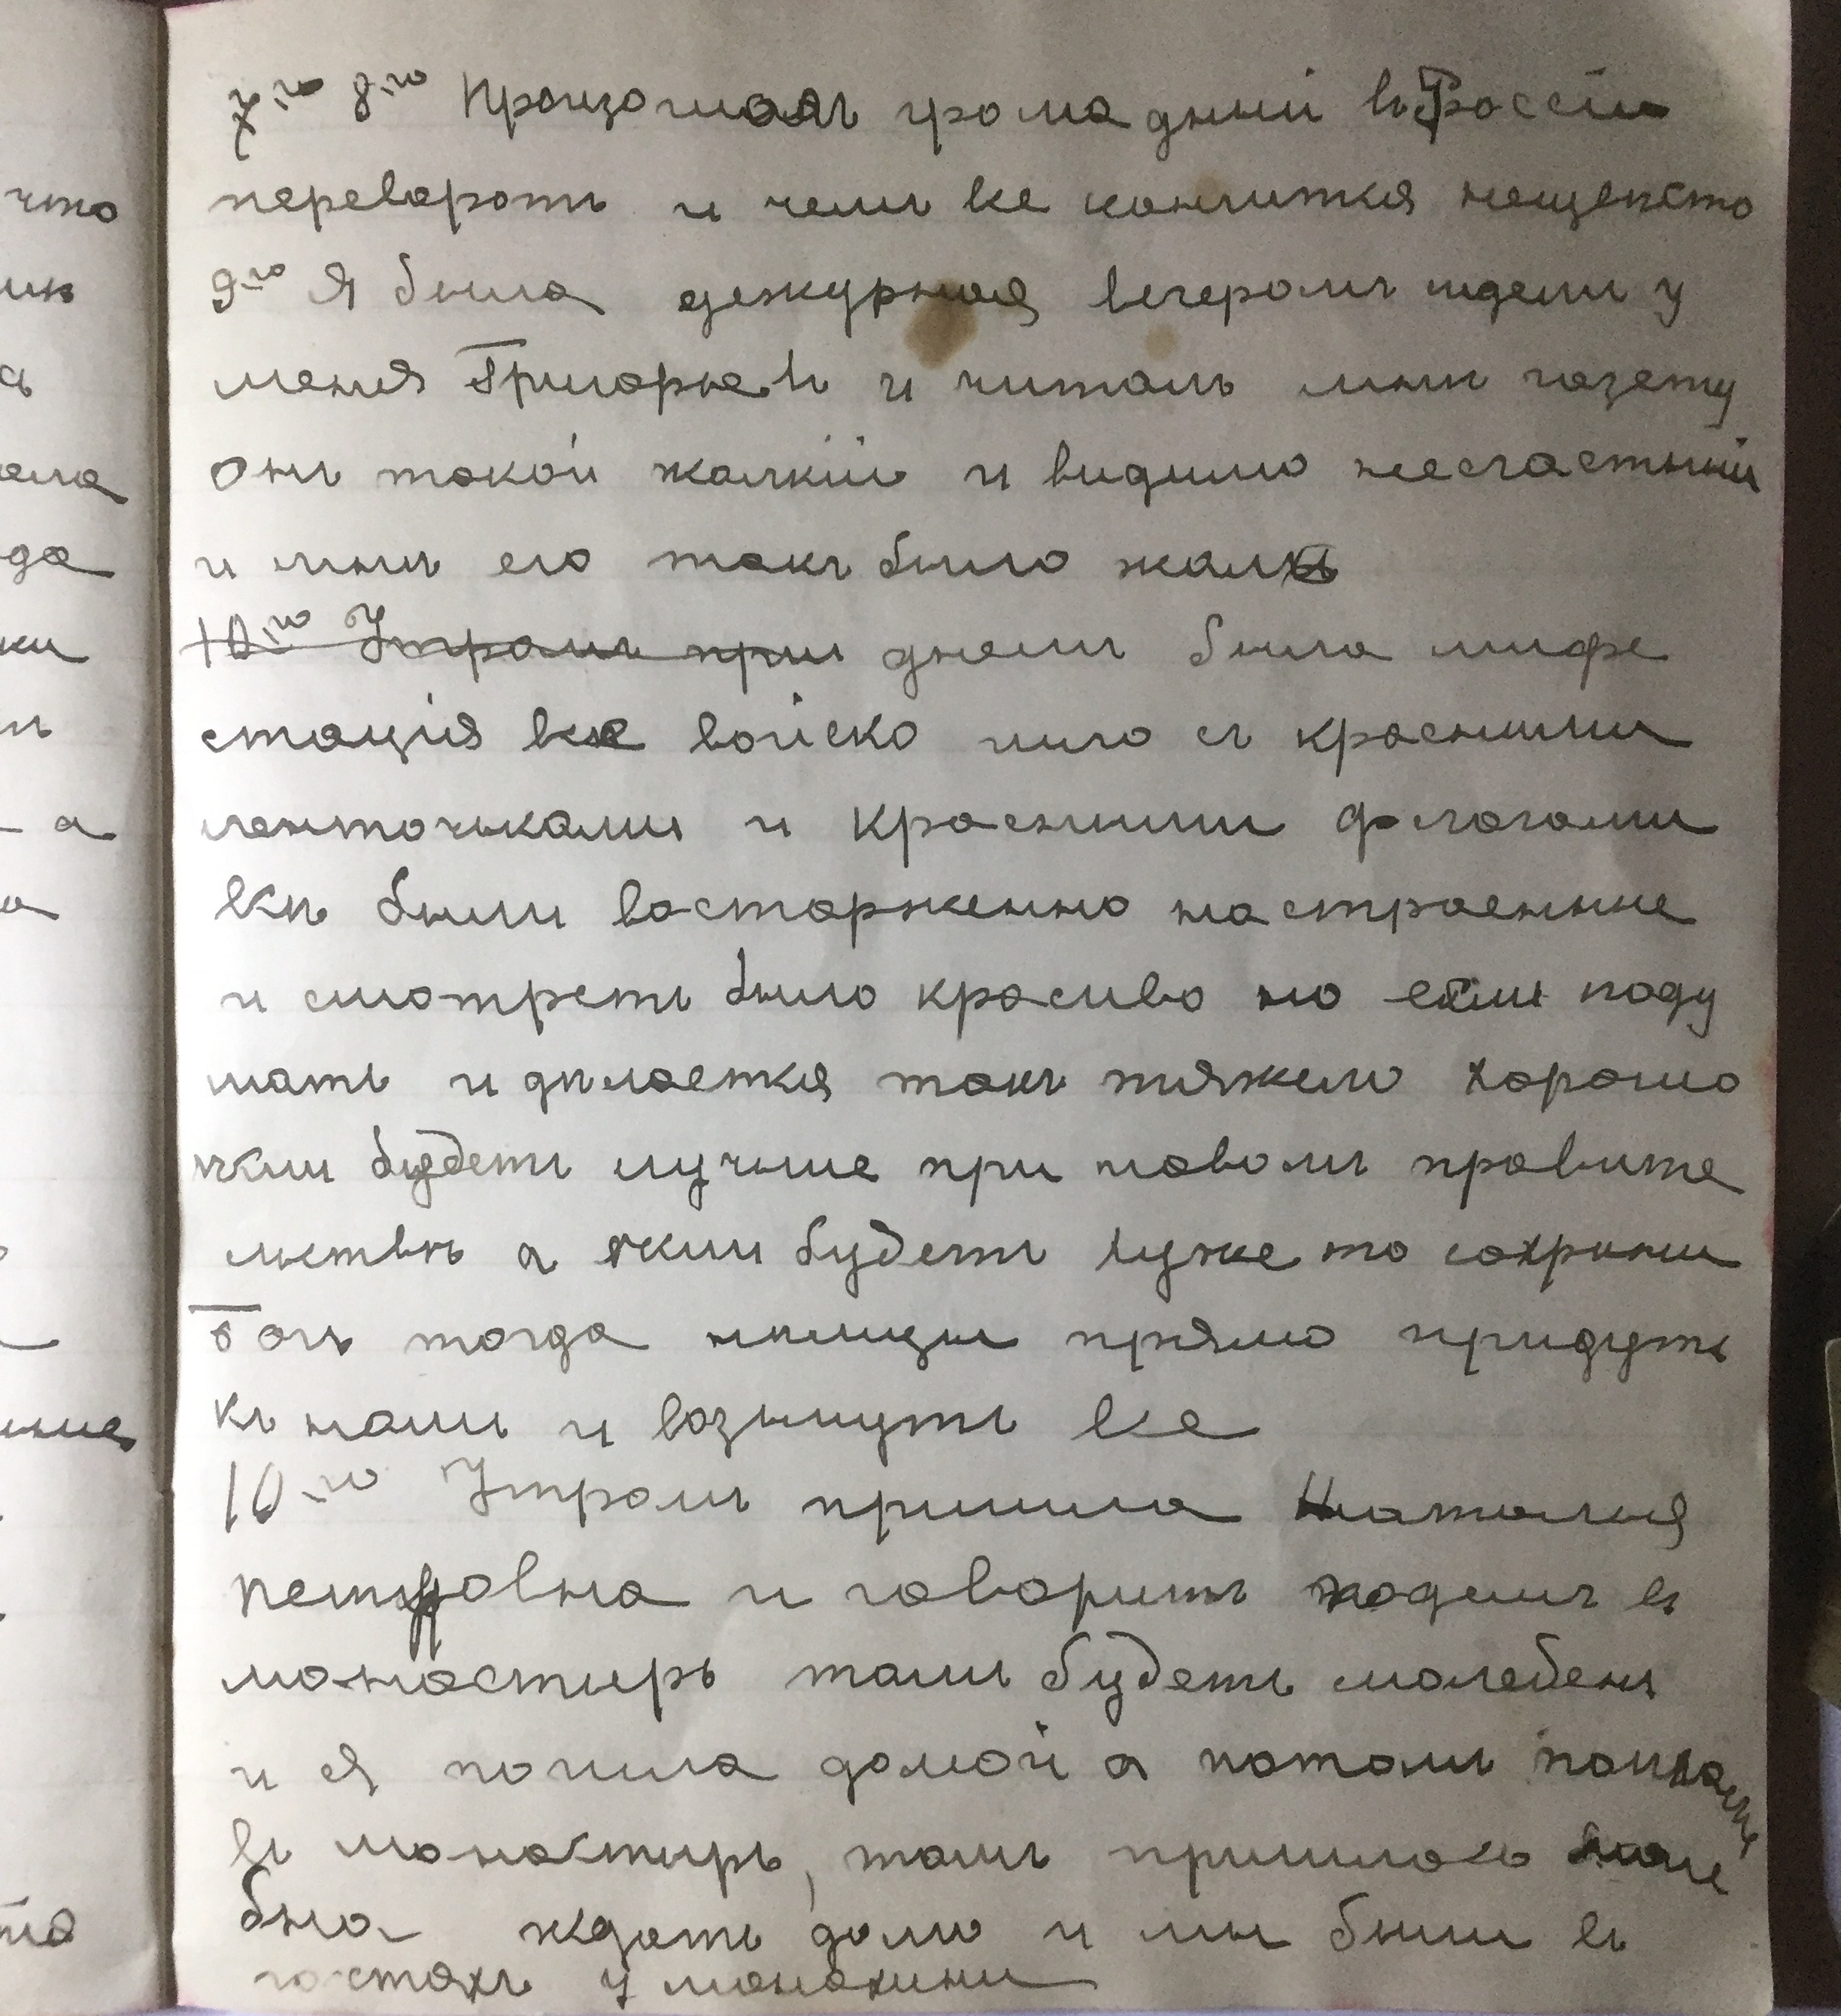 что
ик
а
ала
да
ки
а
ние
7-го 8-го Произошолъ громадный въ Россiи
переворотъ и чемъ все кончится неизвестно
9-го Я была дежурная вечеромъ сидели у
меня Григорьевъ и читалъ мнѣ газету
Онъ такой жалкiй и видимо несчастный
и мнѣ его такъ было жаль
10-го Утромъ при днемъ была мифе
стацiя все войско шло съ красными
ленточьками и красными флагами
всѣ были восторженно настроенные
и смотреть было красиво но если поду
мать и дѣлается такъ тяжело хорошо
ѣсли будетъ лучше при новомъ правите
льствѣ а ѣсли будетъ хуже то сохрани
Богъ тогда нѣмцы прямо придутъ
къ намъ и возьмутъ все
10-го Утромъ пришла Наталья
Петровна и говоритъ ходемъ въ
монастырь тамъ будетъ молебенъ
и я пошла домой а потомъ
въ монастырь, тамъ пришлось моле
бна ждать долго и мы были въ
гостяхъ у монахини